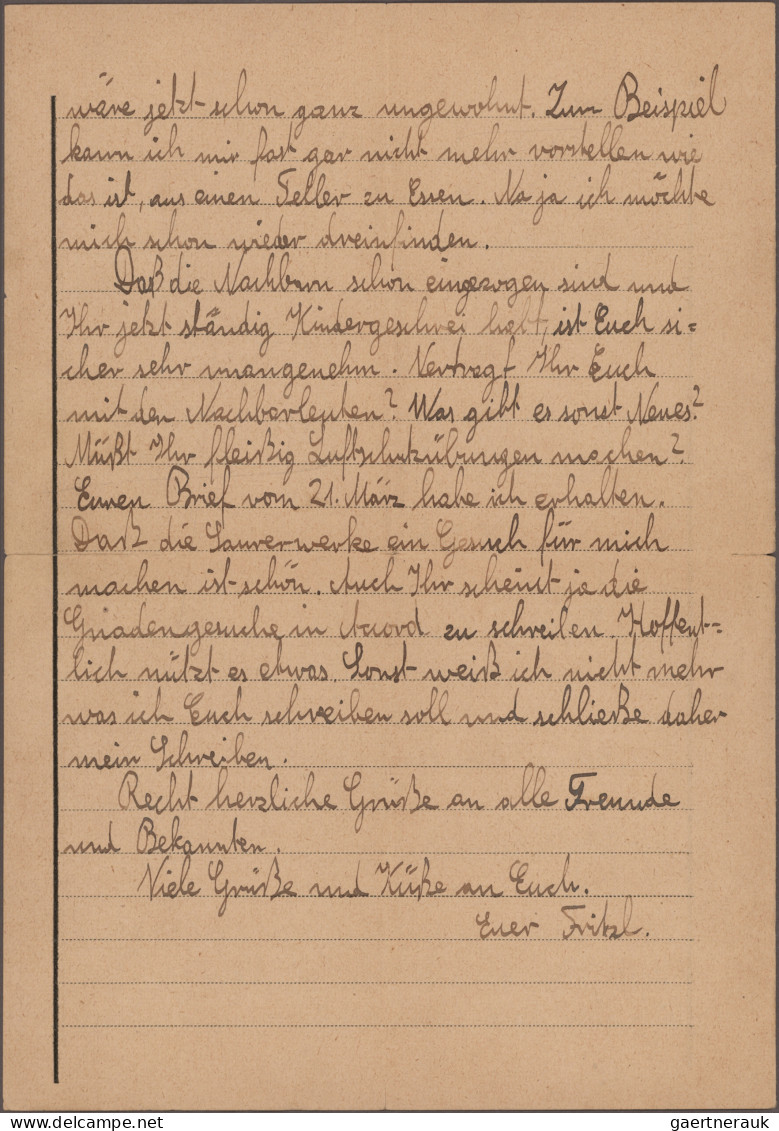 wäre jetzt schon ganz ungewohnt. Zum Beispiel
kann ich mir fast gar nicht mehr vorstellen wie
das ist, aus einen Teller zu Essen. Na ja ich möchte
mich schon wieder dreinfinden.
Daß die Nachbarn schon eingezogen sind und
Ihr jetzt ständig Kindergeschrei habt, ist Euch si=
cher sehr unangenehm. Vertragt Ihr Euch
mit den Nachbarleuten? Was gibt es sonst Neues?
Müßt Ihr fleißig Luftschutzübungen machen?
Euren Brief vom 21. März habe ich erhalten.
Daß die Saurerwerke ein Gesuch für mich
machen ist schön. Auch Ihr scheint ja die
Gnadengesuche in Accord zu schreiben. Hoffent=
lich nützt es etwas. Sonst weiß ich nicht mehr
was ich Euch schreiben soll und schließe daher
mein Schreiben.
Recht herzliche Grüße an alle Freunde
und Bekannten.
Viele Grüße und Küße an Euch.
Euer Fritzl.
gaertnerauk